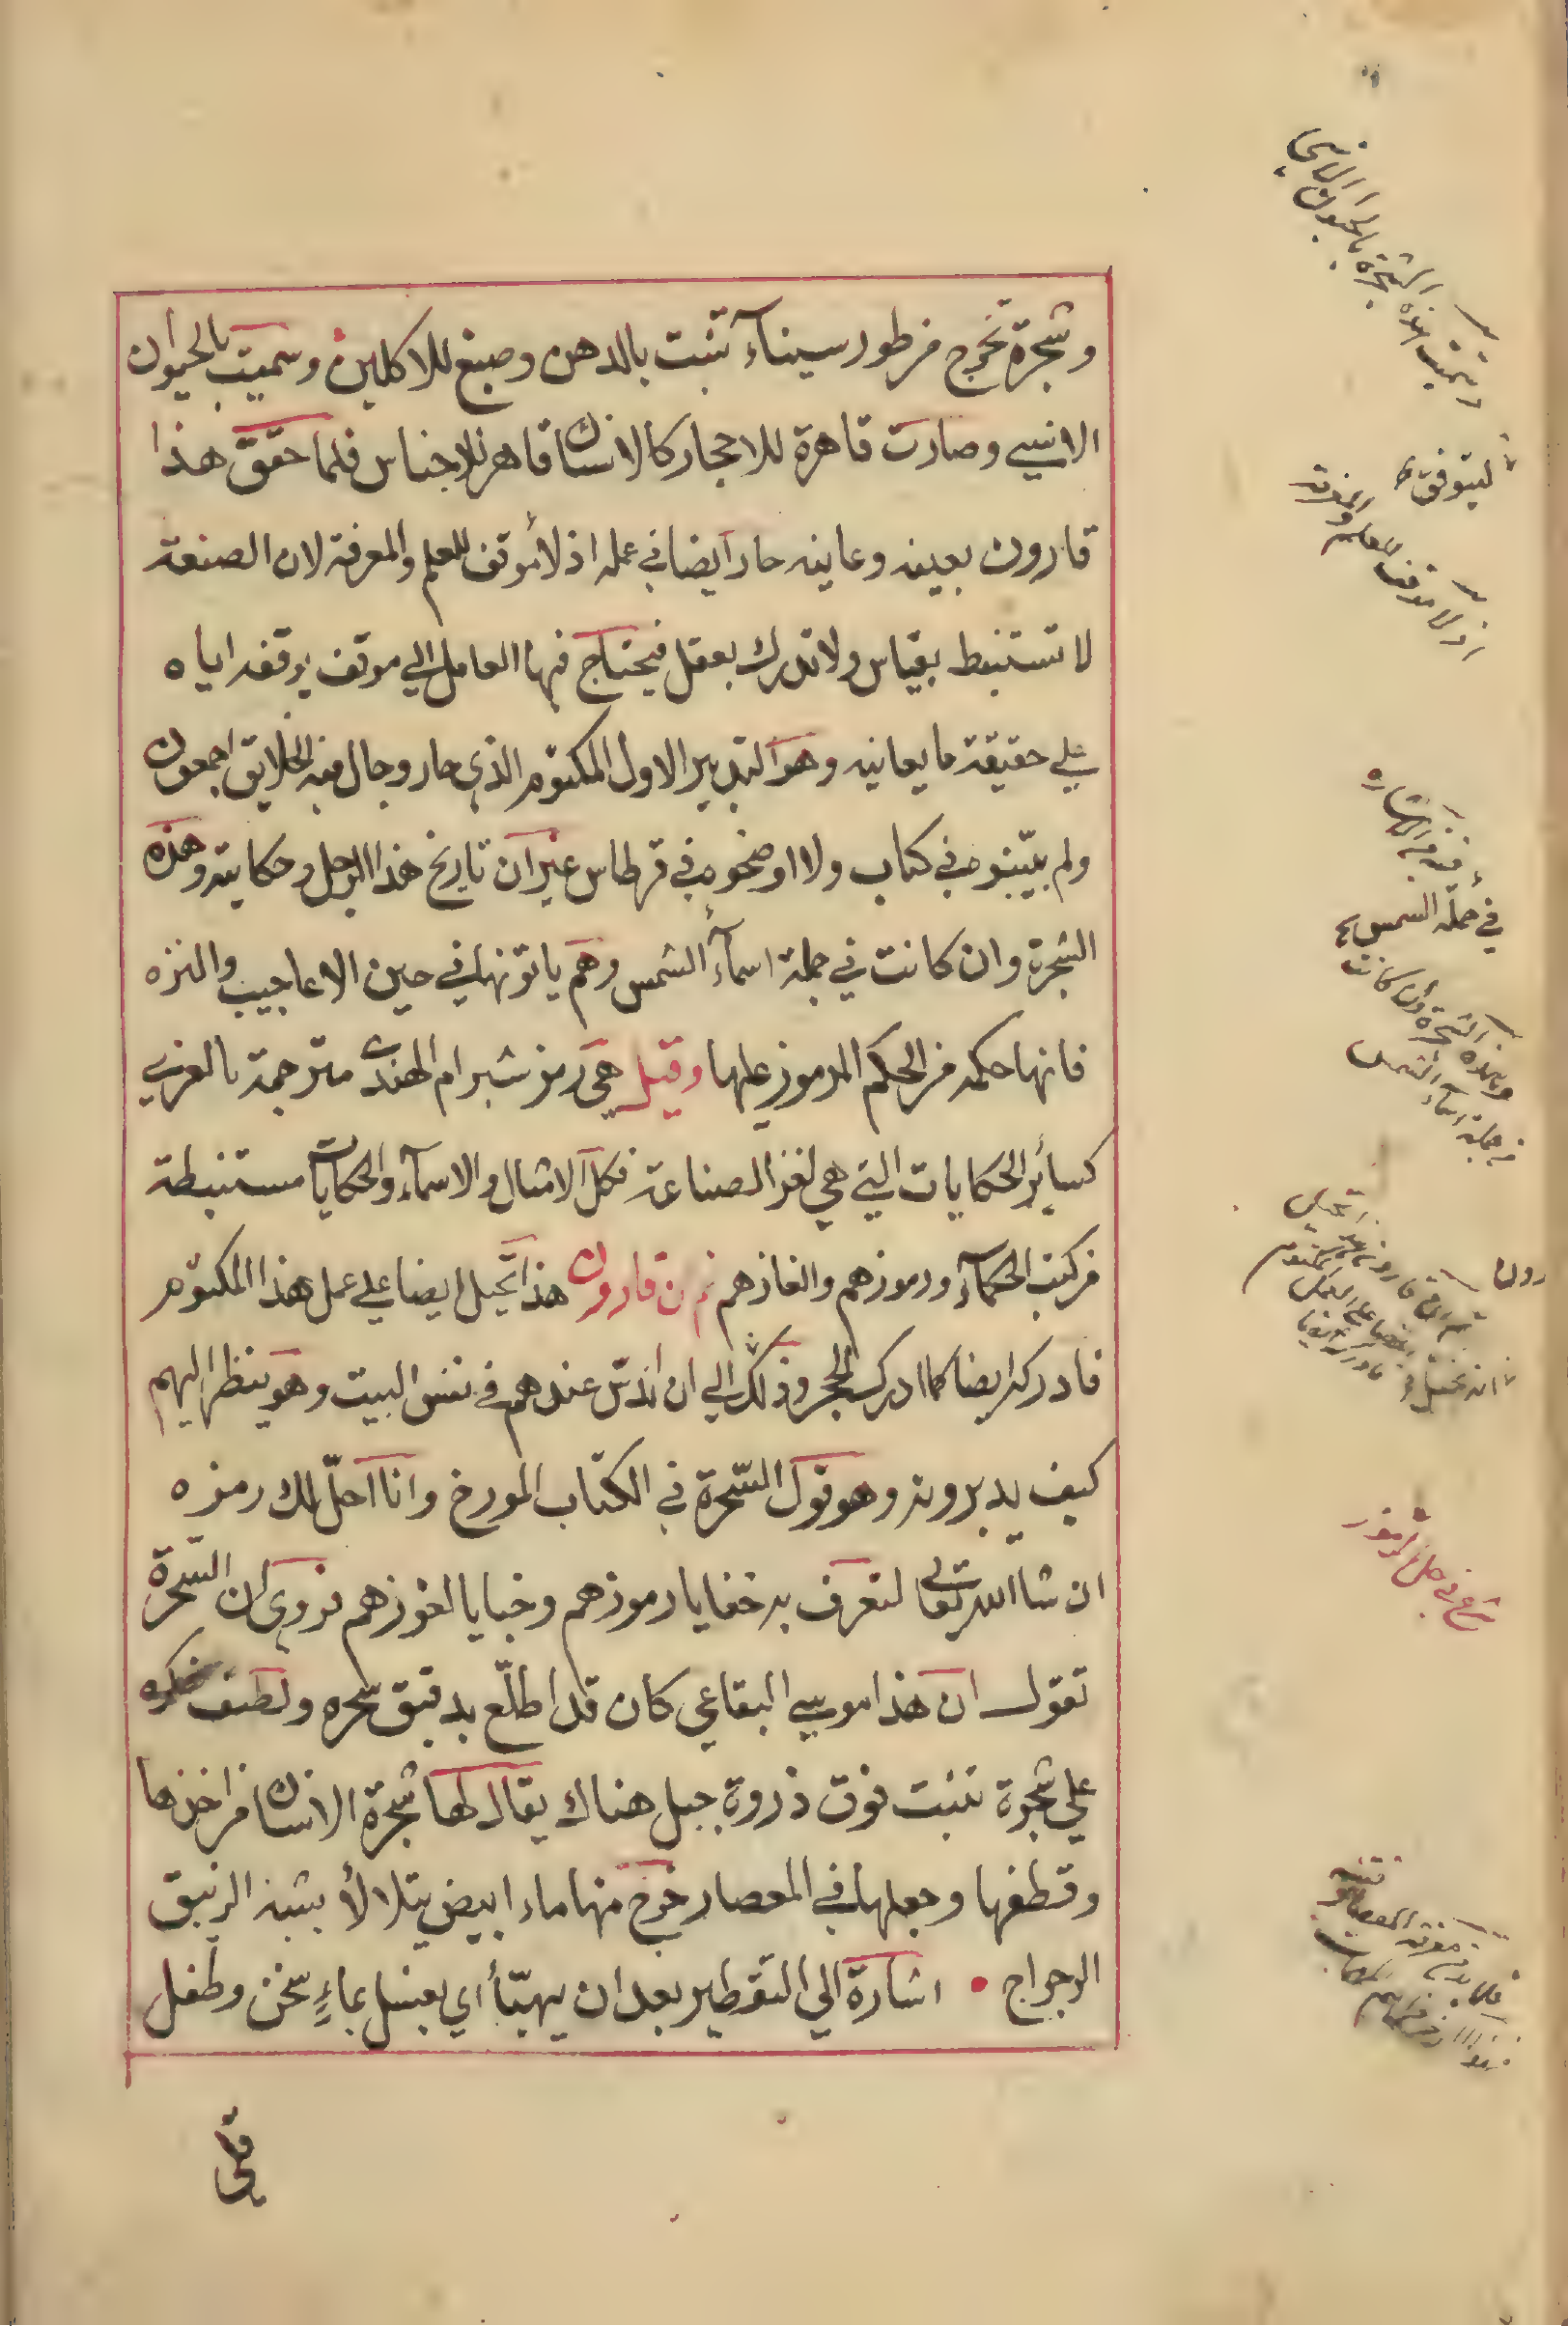 وشجرة تخرج من طور سيناء تنبت بالدهن وصبغ للاكلين وسميت بالحيوان
الانسي وصارت قاهرة للاحجار كالانسان قاهر للاجناس فلما حقق هذا
قارون بعينه وعاينه حار ايضا في عمله اذ لا موقف للعلم والمعرفة لان الصنعة
لا تستنبط بقياس ولا تدرك بعقل فيحتاج فيها العامل الي موقف يوقفه اياه
علي حقيقة ما يعانيه وهو التدبير الاول المكتوم الذي حار وجال فيه الخلايق اجمعون
ولم يبيّنوه في كتاب ولا اوضحوه في قرطاس غير ان تاريخ هذا الرجل وحكايته وهذه
الشجرة وان كانت في جملة اسمآء الشمس وهم ياتونها في حين الاعاجيب والنزه
فانها حكمه من الحكم المرموز عليها وقيل هي رمز شبرام الهندي مترجمة بالعربي
كسائر الحكايات التي هي لغز الصناعة فكل الامثال والاسمآء والحكايات مستنبطة
من كتب الحكمآء ورموزهم والغازهم ثم ان قارون هذا تحيل ايضا علي عمل هذا المكتوم
فادركه ايضا كما ادرك الحجر وذلك الي ان اندسّ عندهم في نفس البيت وهو ينظر اليهم
كيف يدبرونه وهو قول السّحرة في الكتاب المورخ وانا احلّ لك رمزه
ان شا الله تعالي لتعرف به خفايا رموزهم وخبايا لغوزهم فروي ان السّحرة
تقول ان هذا موسي البقاعي كان قد اطلّع بدقيق سحره ولطيف فكره
علي شجرة تنبت فوق ذروة جبل هناك يقال لها شجرة الانسان فمن اخذها
وقطفها وجعلها في المعصار خرج منها ماء ابيض يتلالأ يشبه الزيبق
الرجراج • اشارة الي التقطير بعد ان يهيّأ اي يغسل بماءٍ سخن وطفل
قلي
وسميت هذه الشجرة بالحيوان الانسي
ليتوقف
اذ لا موقف للعلم والمعرفة
في جملة الشمس
وهذه الشجرة وان كانت
في جملة اسمآء الشمس
شرع في حل الرموز